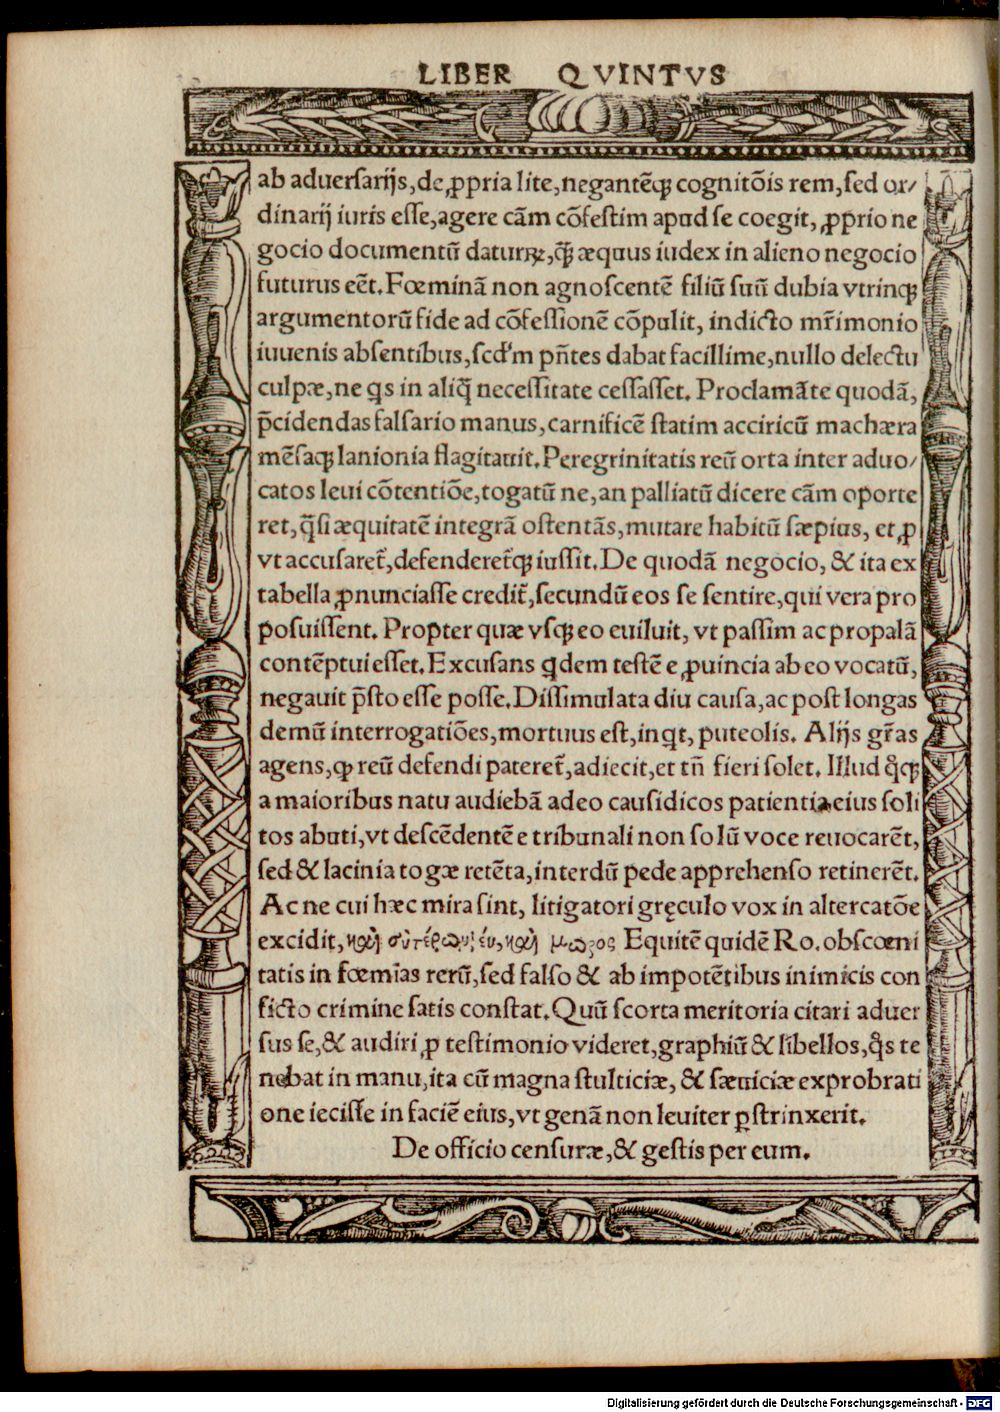 LIBER QVINTVS
ab aduersarijs, de ꝓpria lite, negantẽqꝫ cognitõis rem, sed or/
dinarij iuris esse, agere cãm cõfestim apud se coegit, ꝓprio ne
gocio documentũ daturꝝ, q̃ꝫ æquus iudex in alieno negocio
futurus eẽt. Fœminã non agnoscentẽ filiũ suũ dubia vtrinqꝫ
argumentorũ fide ad cõfessionẽ cõpulit, indicto mr̃imonio
iuuenis absentibus, scd'm pñtes dabat facillime, nullo delectu
culpæ, ne qs in aliq̃ necessitate cessasset. Proclamãte quodã,
p̃cidendas falsario manus, carnificẽ statim acciricũ machæra
mẽsaqꝫ lanionia flagitauit. Peregrinitatis reũ orta inter aduo/
catos leui cõtentiõe, togatũ ne, an palliatũ dicere cãm oporte
ret, q̃si æquitatẽ integrã ostentãs, mutare habitũ sæpius, et ꝓ
vt accusaret̃, defenderet̃qꝫ iussit. De quodã negocio, & ita ex
tabella ꝓnunciasse credit̃, secundũ eos se sentire, qui vera pro
posuissent. Propter quæ vsqꝫ eo euiluit, vt passim ac propalã
contẽptui esset. Excusans qdem testẽ e ꝓuincia ab eo vocatũ,
negauit p̃sto esse posse. Dissimulata diu causa, ac post longas
demũ interrogatiões, mortuus est, inqt, puteolis. Alijs gr̃as
agens, ꝙ reũ defendi pateret̃, adiecit, et tñ fieri solet. Illud q̊qꝫ
a maioribus natu audiebã adeo causidicos patientia eius soli
tos abuti, vt descẽdentẽ e tribunali non solũ voce reuocarẽt,
sed & lacinia togæ retẽta, interdũ pede apprehenso retinerẽt.
Ac ne cui hæc mira sint, litigatori gręculo vox in altercatõe
excidit, καὶ σὺ γέρων εἶ, καὶ μωρος Equitẽ quidẽ Ro. obscœni
tatis in fœmĩas rerũ, sed falso & ab impotẽtibus inimicis con
ficto crimine satis constat. Quũ scorta meritoria citari aduer
sus se, & audiri ꝓ testimonio videret, graphiũ & libellos, q̊s te
nebat in manu, ita cũ magna stulticiæ, & sæuiciæ exprobrati
one iecisse in faciẽ eius, vt genã non leuiter ꝑstrinxerit.
De officio censuræ, & gestis per eum.
Digitalisierung gefördert durch die Deutsche Forschungsgemeinschaft - DFG